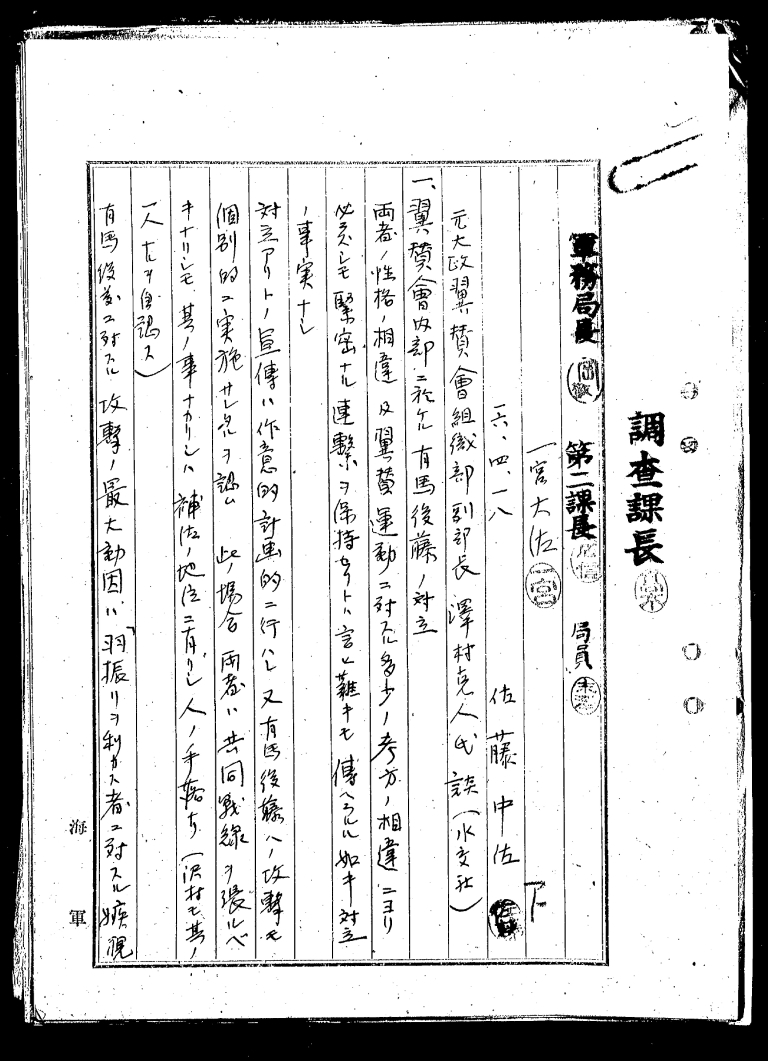 調査課長
軍務局長 第二課長 局員
一宮大佐 一宮
一六、四、一八 佐藤中佐
元大政翼賛會組織部副部長 澤村克人氏談(水交社)
一、翼賛會内部ニ於ケル有馬後藤ノ対立
両者ノ性格ノ相違及翼賛運動ニ対スル多少ノ考方ノ相違ニヨリ
必ズシモ緊密ナル連繫ヲ保持セリトハ言ヒ難キモ傳ヘラルル如キ対立
ノ事実ナシ
対立アリトノ宣傳ハ作意的計画的ニ行ハレ又有馬後藤ヘノ攻撃モ
個別的ニ実施サレタルヲ認ム 此ノ場合両者ハ共同戦線ヲ張ルベ
キナリシモ其ノ事ナカリシハ補佐ノ地位ニ有リシ人ノ手落チ(沢村モ其ノ
一人ナルヲ自認ス)
有馬後藤ニ対スル攻撃ノ最大動因ハ「羽振リヲ利カス者ニ対スル嫉視
海軍